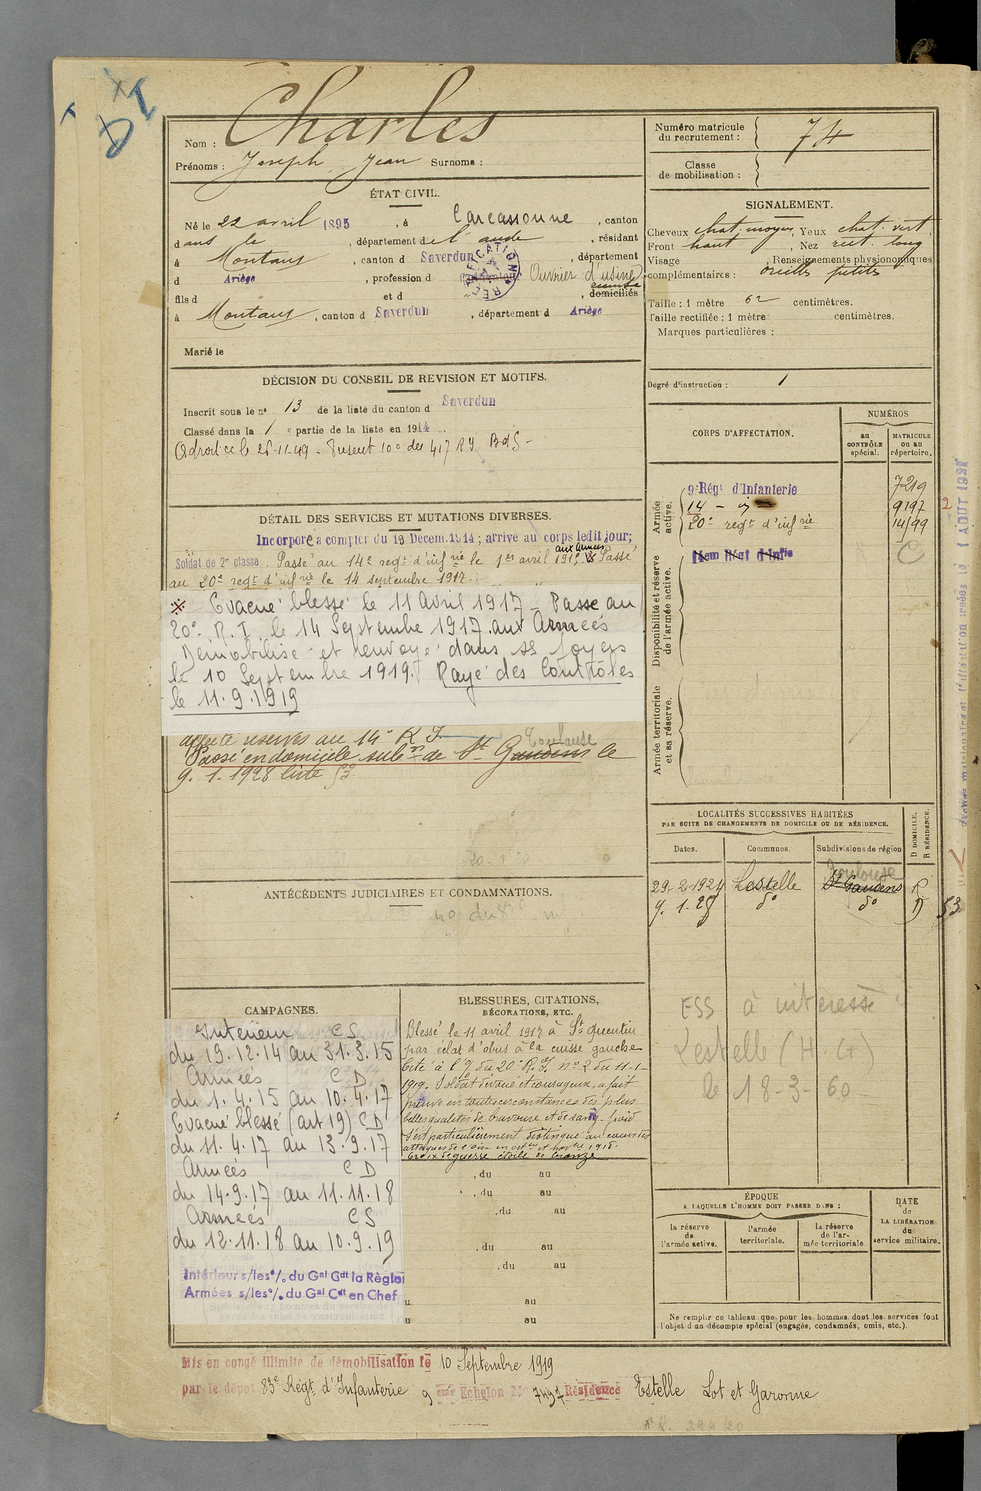 Nom : Charles
Prénoms : Joseph Jean Surnoms :
Numéro matricule
du recrutement : 74
Classe
de mobilisation :
ÉTAT CIVIL.
Né le 22 avril 1895, à Carcassonne, canton
dans le, département de l'aude, résidant
à Montaut, canton d Saverdun, département
d Ariège, profession d Ouvrier d'usine
RECTIFICATION
fils d et d, domiciliés
à Montaut, canton d Saverdun, département d Ariège
Marié le
SIGNALEMENT.
Cheveux chat. moyen, Yeux chat. vert
Front haut, Nez rect. long
Visage, Renseignements physionomiques
complémentaires : oreilles petites
Taille : 1 mètre 62 centimètres.
Taille rectifiée : 1 mètre centimètres.
Marques particulières :
Degré d'instruction : 1
DÉCISION DU CONSEIL DE REVISION ET MOTIFS.
Inscrit sous le n° 13 de la liste du canton d Saverdun
Classé dans la 1e partie de la liste en 1914
DÉTAIL DES SERVICES ET MUTATIONS DIVERSES.
Incorporé à compter du 19 Décem. 1914 ; arrivé au corps ledit jour;
aux armées
Soldat de 2e classe. Passé au 14e regt d'infrie le 1er avril 1915. Passé
au 20e regt d'infrie le 14 septembre 1917.
※ Evacué blessé le 11 Avril 1917 - Passe au
20e R.I. le 14 Septembre 1917 aux Armées
Démobilisé et renvoyé dans ses foyers
le 10 Septembre 1919. Rayé des Contrôles
le 11.9.1919
affecté réserves au 14e R I
Toulouse
Passé en domicile subon de St Gaudens le
9.1.1928 liste 53
CORPS D'AFFECTATION.
NUMÉROS
AU CONTRÔLE spécial.
MATRICULE ou au répertoire.
Armée active.
9e Régt d'Infanterie 7219
14 - 9197
20e regt d'infrie 14199
Disponibilité et réserve de l'armée active.
14em Régt d'Infie
Armée territoriale et sa réserve.
LOCALITÉS SUCCESSIVES HABITÉES
PAR SUITE DE CHANGEMENTS DE DOMICILE OU DE RÉSIDENCE.
Dates.
Communes.
Subdivisions de région
D DOMICILE.
R RÉSIDENCE.
Toulouse
29-2-1924 Lestelle St Gaudens R
9.1.28 do do D 53
ANTÉCÉDENTS JUDICIAIRES ET CONDAMNATIONS.
CAMPAGNES.
Intérieur CS
du 19.12.14 au 31.3.15
Armées CD
du 1.4.15 au 10.4.17
Evacué blessé (art 19) CD
du 11.4.17 au 13.9.17
Armées CD
du 14.9.17 au 11.11.18
Armées CS
du 12.11.18 au 10.9.19
Intérieur s/les o/. du Gal Cdt la Région
Armées s/les o/. du Gal Cdt en Chef
BLESSURES, CITATIONS,
DÉCORATIONS, ETC.
Blessé le 11 avril 1917 à St quentin
par éclat d'obus à la cuisse gauche
Cité à l'O. du 20e R.I. n° 2 du 11-1-
1919. Soldat dévoué et courageux, a fait
preuve en toutes circonstances des plus
belles qualités de bravoure et de sang-froid
s'est particulièrement distingué au cours des
attaques de
Croix de guerre étoile de bronze
, du au
, du au
, du au
, du au
, du au
au
au
ESS à intéressé
Lestelle (H.G)
le 18-3-60
ÉPOQUE
A LAQUELLE L'HOMME DOIT PASSER DANS :
la réserve de l'armée active.
l'armée territoriale.
la réserve de l'armée territoriale
DATE de LA LIBÉRATION du service militaire.
Ne remplir ce tableau que pour les hommes dont les services font
l'objet d'un décompte spécial (engagés, condamnés, omis, etc.).
Mis en congé illimité de démobilisation le 10 Septembre 1919
par le dépôt 83e Régt d'Infanterie 9 ème Echelon N° 7497 Résidence Estelle Lot et Garonne